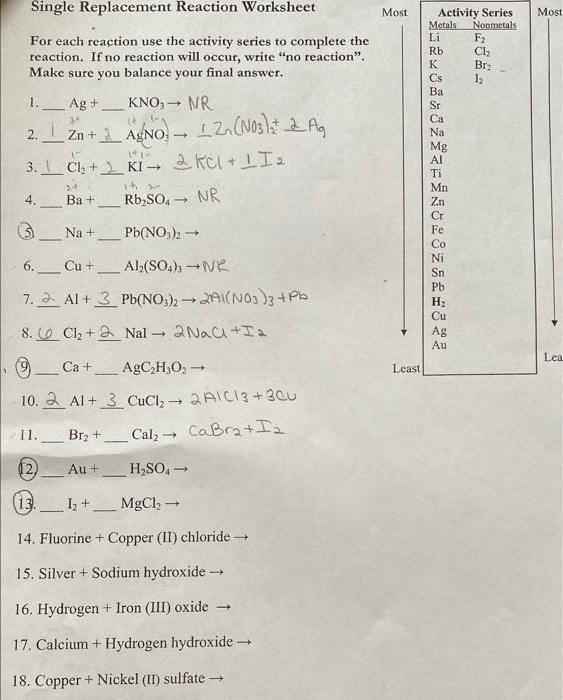 Single Replacement Reaction Worksheet
For each reaction use the activity series to complete the
reaction. If no reaction will occur, write “no reaction”.
Make sure you balance your final answer.
1. ___ Ag + ___ KNO₃ → NR
2+ 1+ 1-
2. 1 Zn + 2 AgNO₃ → 1 Zn(NO₃)₂ + 2 Ag
1- 1+ 1-
3. 1 Cl₂ + 2 KI → 2 KCl + 1 I₂
2+ 1+ 2-
4. ___ Ba + ___ Rb₂SO₄ → NR
5 ___ Na + ___ Pb(NO₃)₂ →
6. ___ Cu + ___ Al₂(SO₄)₃ → NR
7. 2 Al + 3 Pb(NO₃)₂ → 2Al(NO₃)₃ + Pb
8. Cl₂ + 2 NaI → 2NaCl + I₂
9 ___ Ca + ___ AgC₂H₃O₂ →
10. 2 Al + 3 CuCl₂ → 2AlCl3 + 3Cu
11. ___ Br₂ + ___ CaI₂ → CaBr₂ + I₂
12 ___ Au + ___ H₂SO₄ →
13. ___ I₂ + ___ MgCl₂ →
14. Fluorine + Copper (II) chloride →
15. Silver + Sodium hydroxide →
16. Hydrogen + Iron (III) oxide →
17. Calcium + Hydrogen hydroxide →
18. Copper + Nickel (II) sulfate →
Most
Activity Series
Metals Nonmetals
Li F₂
Rb Cl₂
K Br₂
Cs I₂
Ba
Sr
Ca
Na
Mg
Al
Ti
Mn
Zn
Cr
Fe
Co
Ni
Sn
Pb
H₂
Cu
Ag
Au
Least
Most
Lea